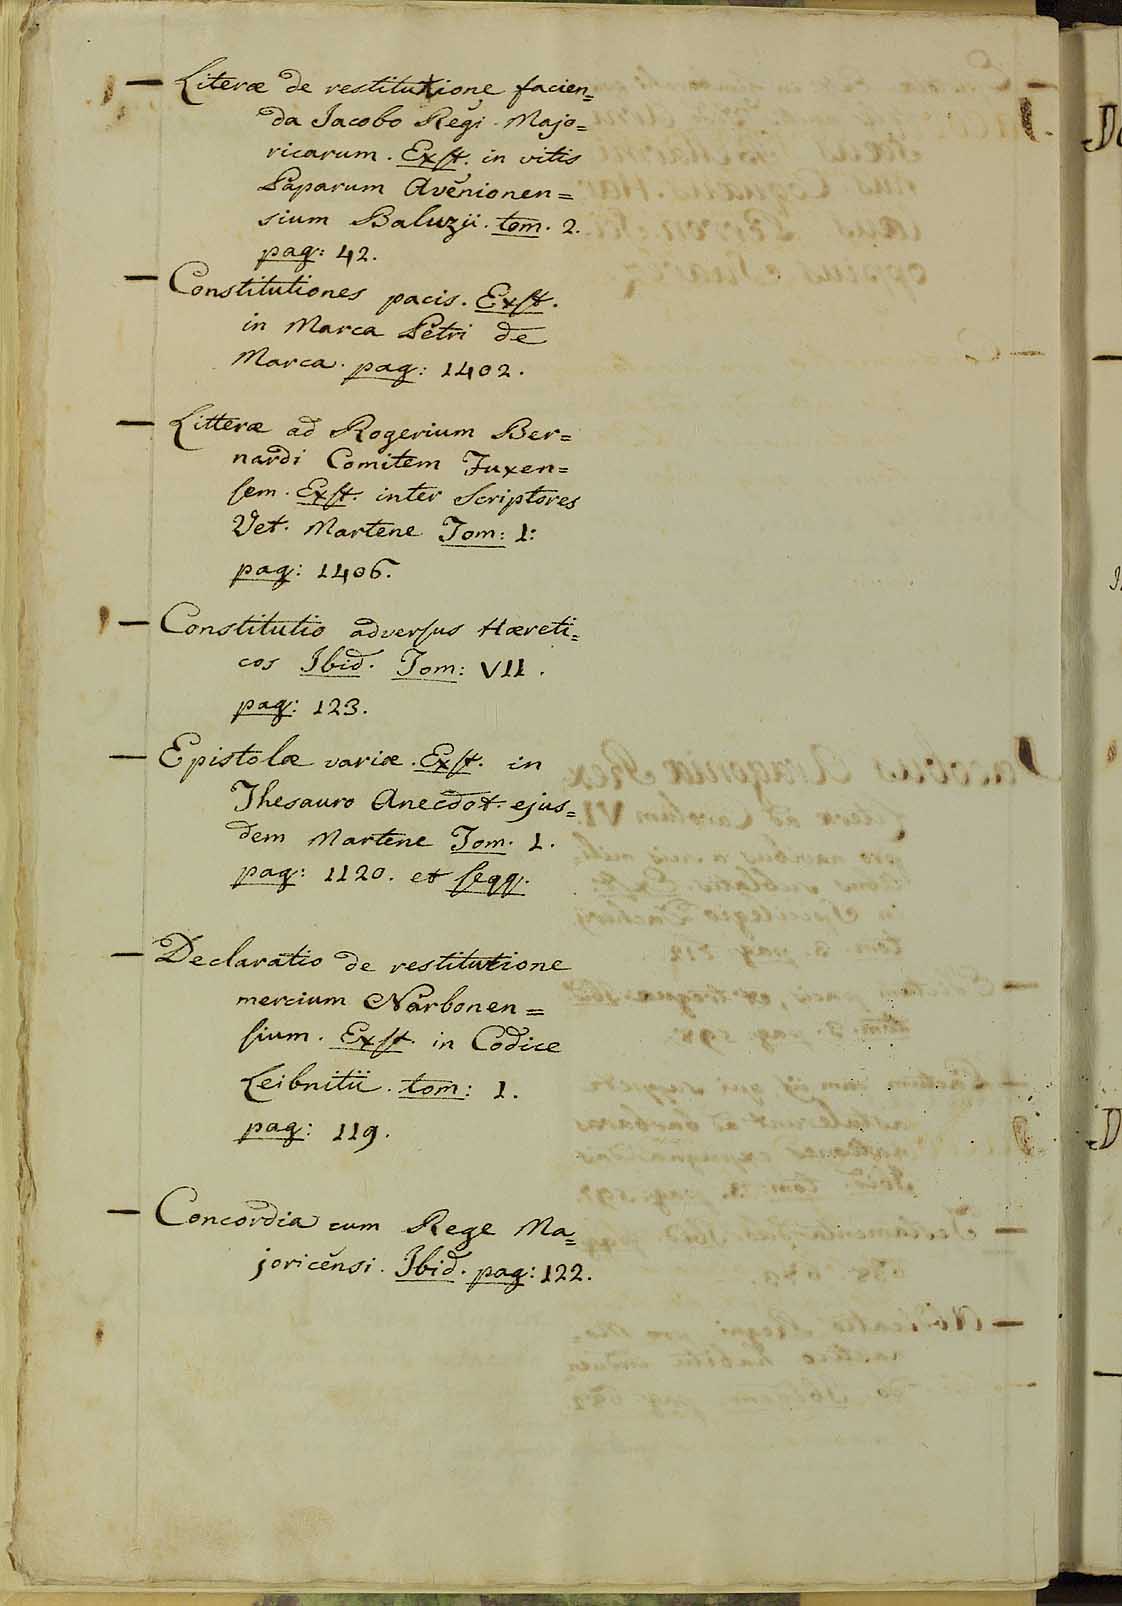 — Literæ de restitutione facien=
da Jacobo Regi Majo=
ricarum. Exst. in vitis
Paparum Avenionen=
sium Baluzii. tom. 2.
pag: 42.
— Constitutiones pacis. Exst.
in Marca Petri de
Marca. pag: 1402.
— Litteræ ad Rogerium Ber=
nardi Comitem Fuxen=
sem. Exst. inter Scriptores
Vet. Martene Tom: 1:
pag: 1406.
— Constitutio adversus Hæreti=
cos Ibid. Tom: VII.
pag: 123.
— Epistolæ variæ. Exst. in
Thesauro Anecdot. ejus=
dem Martene Tom. 1.
pag: 1120. et seqq.
— Declaratio de restitutione
mercium Narbonen=
sium. Exst. in Codice
Leibnitii. tom: 1.
pag: 119.
— Concordia cum Rege Ma=
joricensi. Ibid. pag: 122.